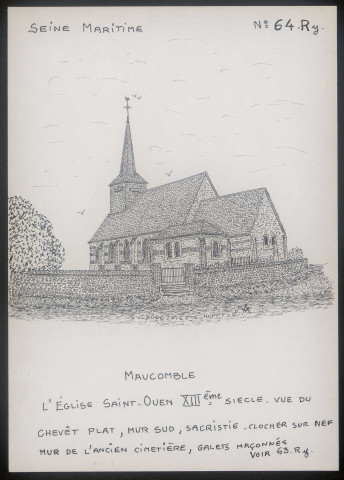 SEINE MARITIME
N° 64.Ry.
MAUCOMBLE
L'ÉGLISE SAINT-OUEN XIIIème SIECLE. VUE DU
CHEVÊT PLAT, MUR SUD, SACRISTIE. CLOCHER SUR NEF
MUR DE L'ANCIEN CIMETIÈRE, GALETS MAÇONNÉS
VOIR 63.Ry.